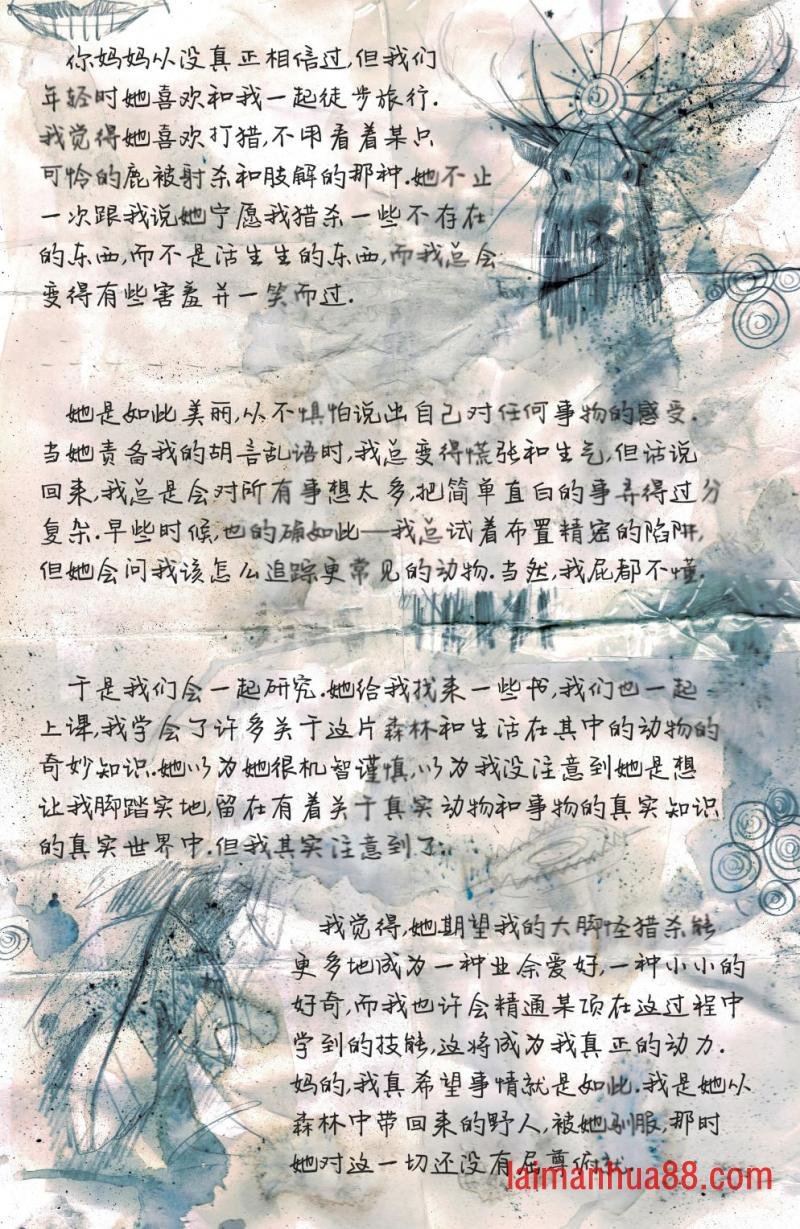 你妈妈从没真正相信过,但我们
年轻时她喜欢和我一起徒步旅行.
我觉得她喜欢打猎,不用看着某只
可怜的鹿被射杀和肢解的那种.她不止
一次跟我说她宁愿我猎杀一些不存在
的东西,而不是活生生的东西,而我总会
变得有些害羞并一笑而过.
她是如此美丽,从不惧怕说出自己对任何事物的感受.
当她责备我的胡言乱语时,我总变得慌张和生气,但话说
回来,我总是会对所有事想太多,把简单直白的事弄得过分
复杂.早些时候,也的确如此——我总试着布置精密的陷阱,
但她会问我该怎么追踪更常见的动物.当然,我屁都不懂.
于是我们会一起研究.她给我找来一些书,我们也一起
上课,我学会了许多关于这片森林和生活在其中的动物的
奇妙知识.她以为她很机智谨慎,以为我没注意到她是想
让我脚踏实地,留在有着关于真实动物和事物的真实知识
的真实世界中.但我其实注意到了...
我觉得,她期望我的大脚怪猎杀能
更多地成为一种业余爱好,一种小小的
好奇,而我也许会精通某项在这过程中
学到的技能,这将成为我真正的动力.
妈的,我真希望事情就是如此.我是她从
森林中带回来的野人,被她驯服,那时
她对这一切还没有屈尊俯就
laimanhua88.com